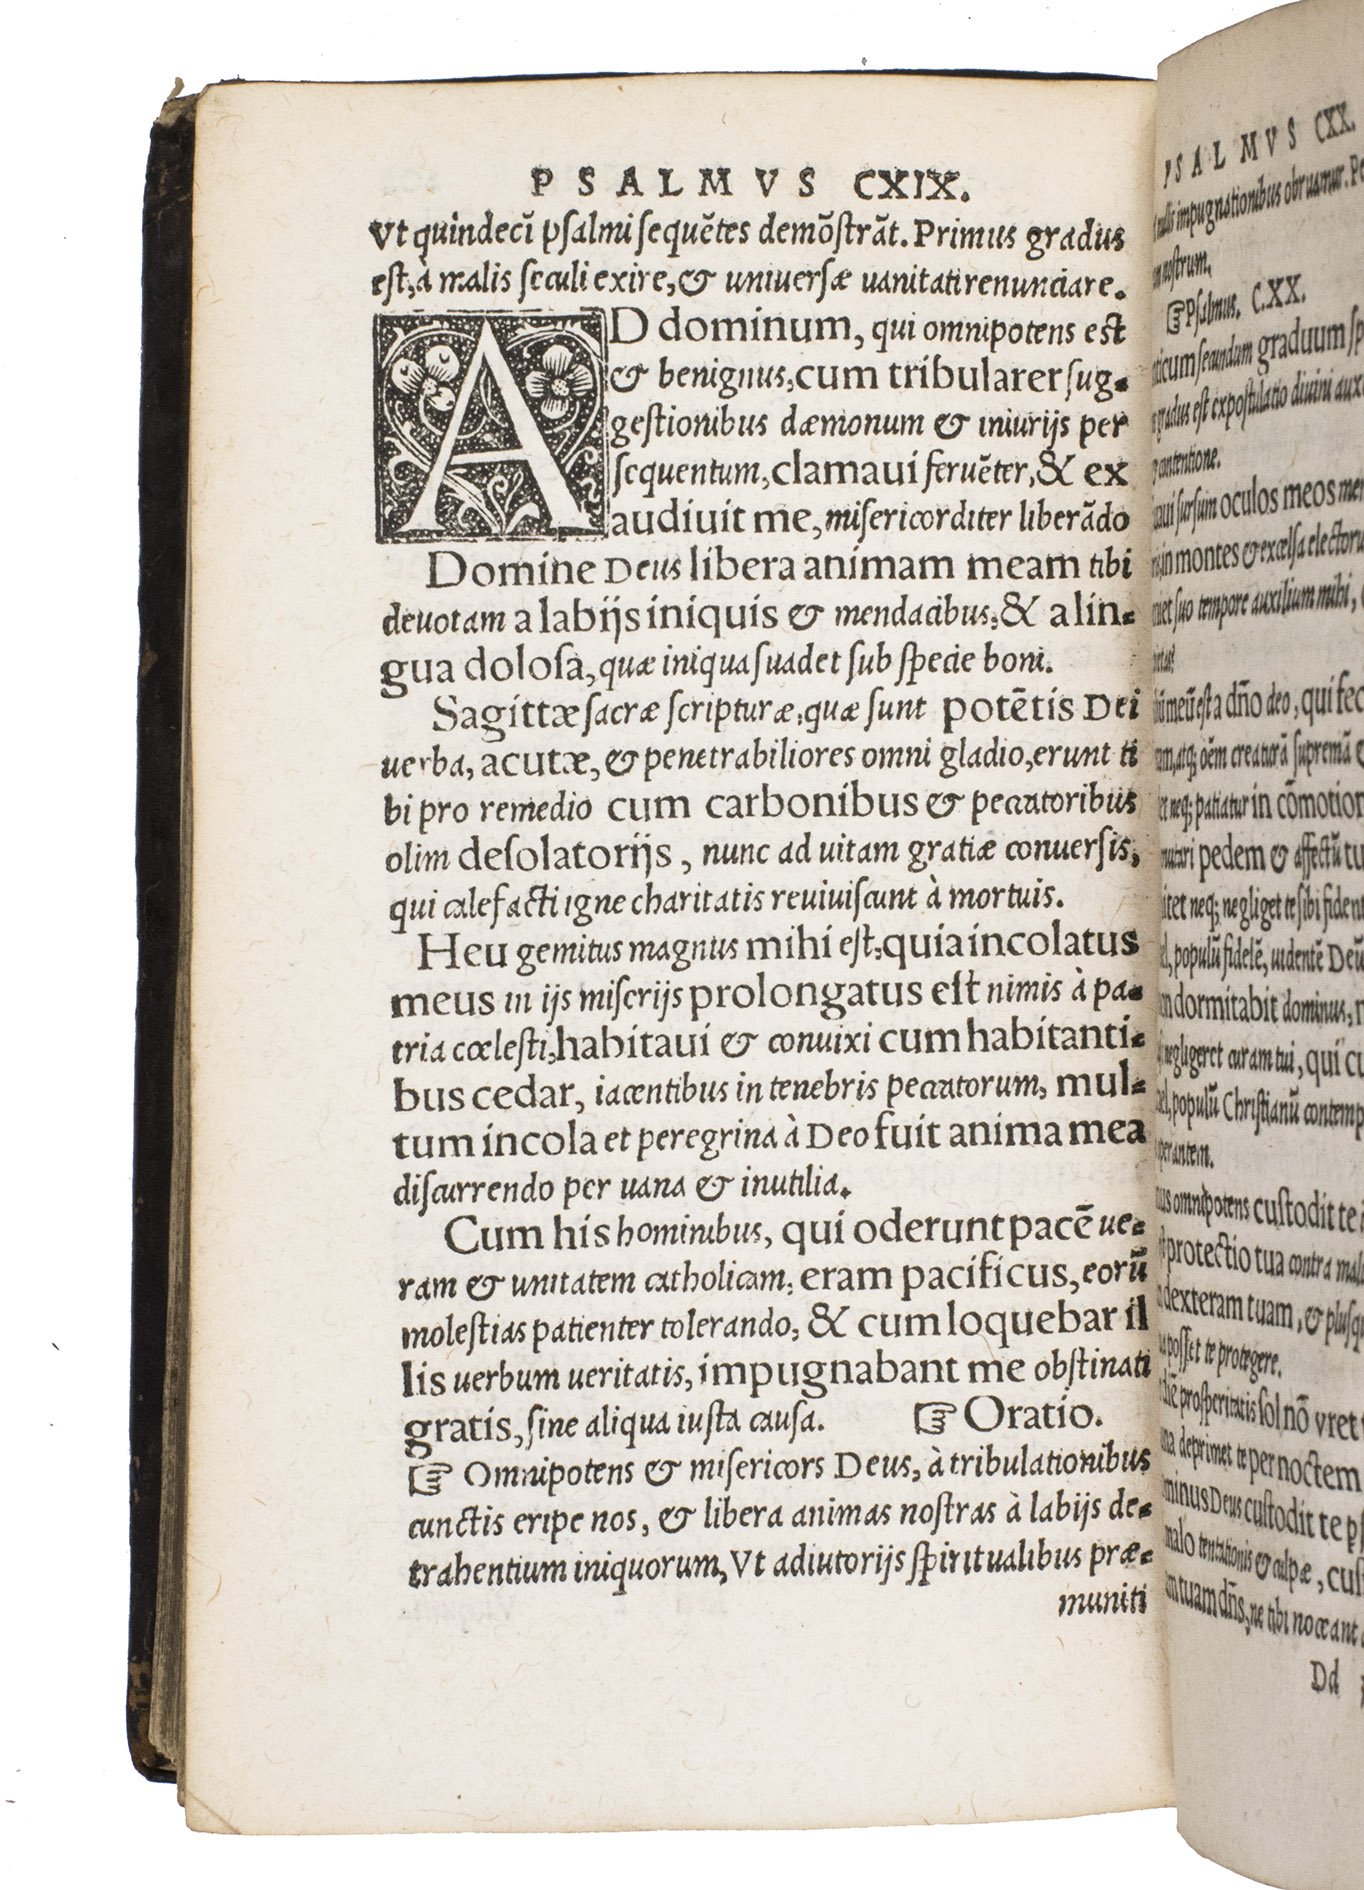 PSALMVS CXIX.
Vt quindecĩ psalmi sequẽtes demõstrãt. Primus gradus
est, à malis seculi exire, & uniuersæ uanitati renunciare.
AD dominum, qui omnipotens est
& benignus, cum tribularer sug-
gestionibus dæmonum & iniurijs per
sequentum, clamaui feruẽter, & ex
audiuit me, misericorditer liberãdo
Domine Deus libera animam meam tibi
deuotam a labijs iniquis & mendacibus, & a lin-
gua dolosa, quæ iniqua suadet sub specie boni.
Sagittæ sacræ scripturæ, quæ sunt potẽtis Dei
uerba, acutæ, & penetrabiliores omni gladio, erunt ti
bi pro remedio cum carbonibus & peccatoribus
olim desolatorijs, nunc ad uitam gratiæ conuersis,
qui calefacti igne charitatis reuiuiscunt à mortuis.
Heu gemitus magnus mihi est, quia incolatus
meus in ijs miserijs prolongatus est nimis à pa-
tria cœlesti, habitaui & conuixi cum habitanti-
bus cedar, iacentibus in tenebris peccatorum, mul-
tum incola et peregrina à Deo fuit anima mea
discurrendo per uana & inutilia.
Cum his hominibus, qui oderunt pacẽ ue-
ram & unitatem catholicam, eram pacificus, eorũ
molestias patienter tolerando, & cum loquebar il
lis uerbum ueritatis, impugnabant me obstinati
gratis, sine aliqua iusta causa. ☞ Oratio.
☞ Omnipotens & misericors Deus, à tribulationibus
cunctis eripe nos, & libera animas nostras à labijs de-
trahentium iniquorum, Vt adiutorijs spiritualibus præ-
muniti
PSALMVS CXX.
impugnationibus obruamur.
nostrum.
☞ Psalmus. C.XX.
secundum graduum
gradus est expostulatio diuini
contentione.
sursum oculos meos
in montes & excelsa
suo tempore auxilium mihi,
meũ est a dño deo, qui
creaturã supremã
patiatur in cõmotion
pedem & affectũ
neq; negliget te sibi
populũ fidelẽ, uidentẽ Deũ
dormitabit dominus,
negligeret curam tui, qui
populũ Christianũ
omnipotens custodit te
protectio tua contra
dexteram tuam, &
posset te protegere.
prosperitatis sol nõ vret
deprimet te per noctem
Deus custodit te
malo tentationis & culpæ,
tuam dñs, ne tibi noceant
Dd